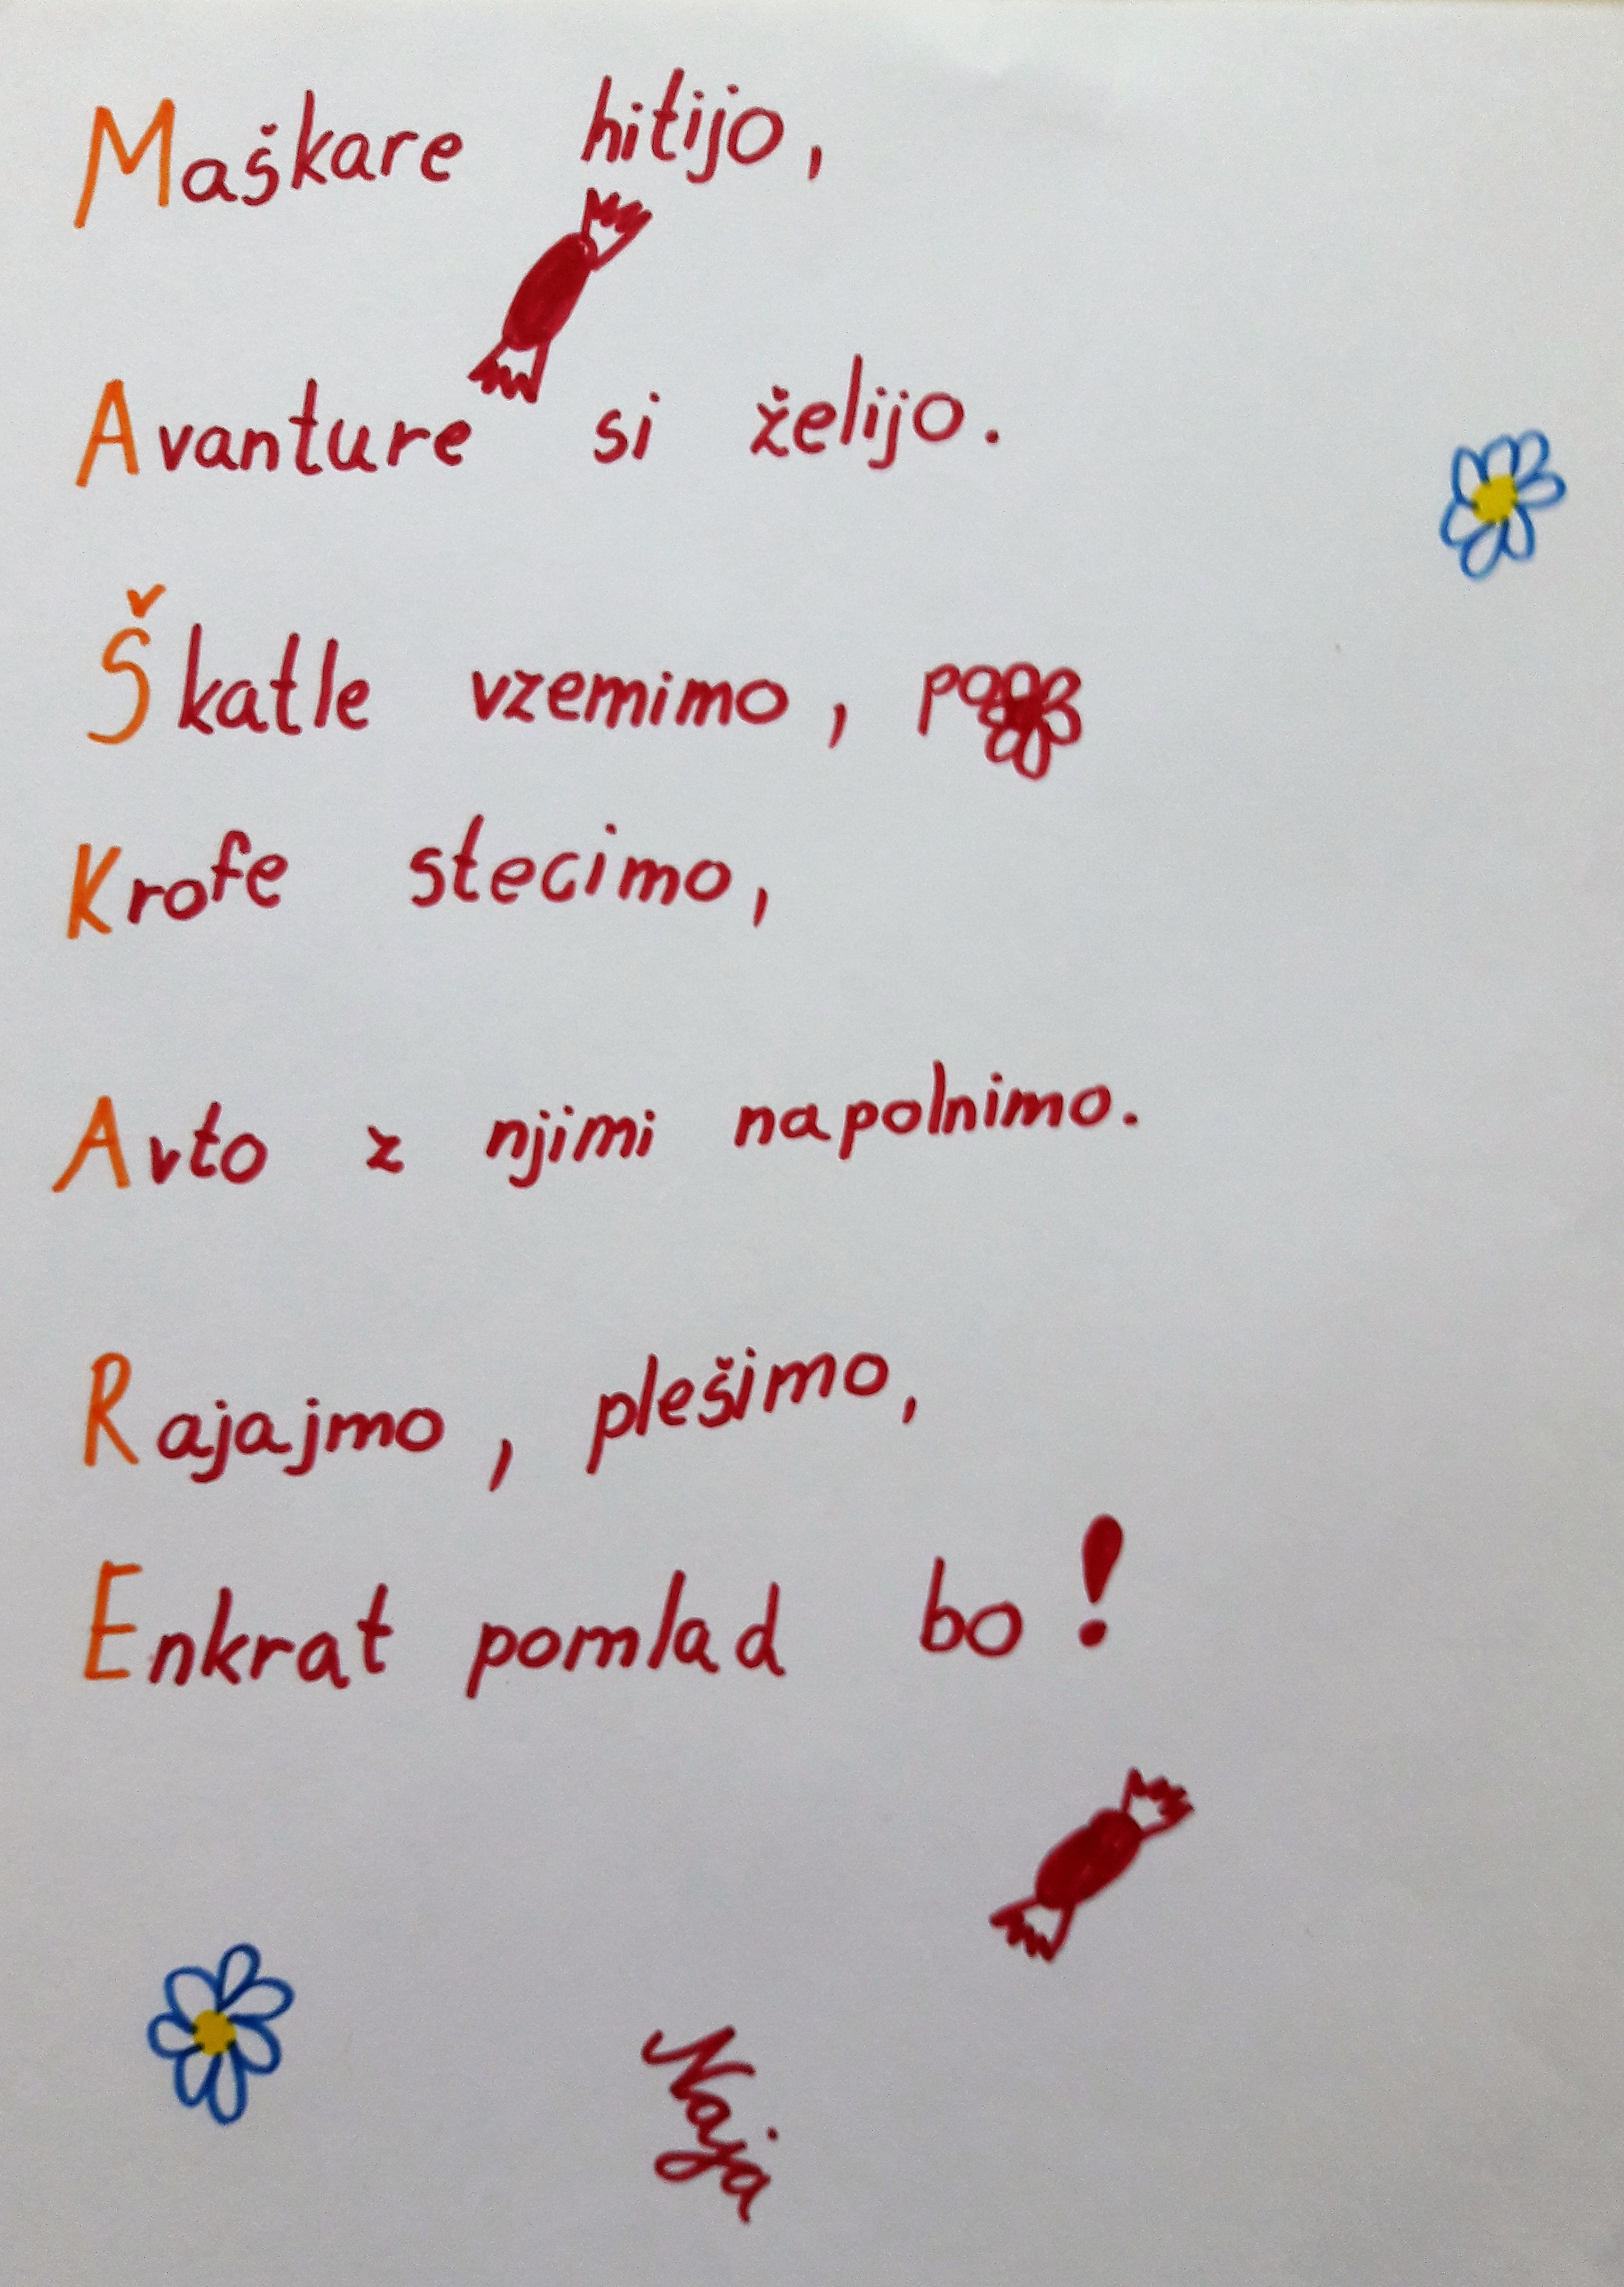 Maškare hitijo,
Avanture si želijo.
Škatle vzemimo, po
Krofe stecimo,
Avto z njimi napolnimo.
Rajajmo, plešimo,
Enkrat pomlad bo!
Naja